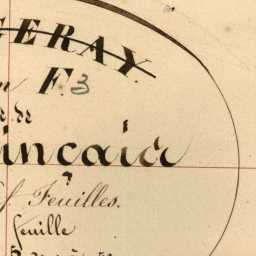 GERAY.
n F. 3
e de
inçais
f Feuilles.
feuille